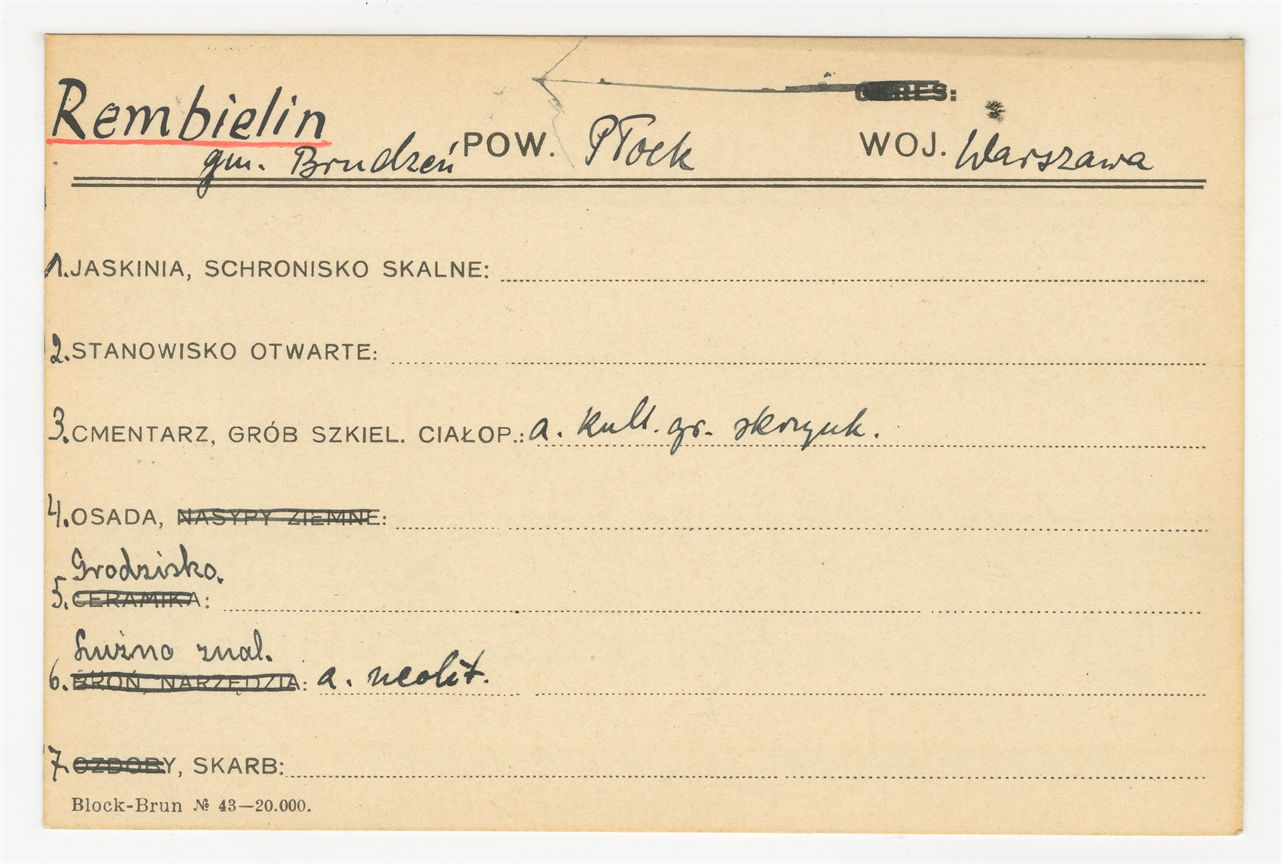 OKRES:
Rembielin
gm. Brudzeń POW. Płock WOJ. Warszawa
1. JASKINIA, SCHRONISKO SKALNE:
2. STANOWISKO OTWARTE:
3. CMENTARZ, GRÓB SZKIEL. CIAŁOP.: a. kult. gr. skrzynk.
4. OSADA, NASYPY ZIEMNE:
Grodzisko.
5. CERAMIKA:
Luźno znal.
6. BROŃ, NARZĘDZIA: a. neolit.
7. OZDOBY, SKARB:
Block-Brun № 43—20.000.